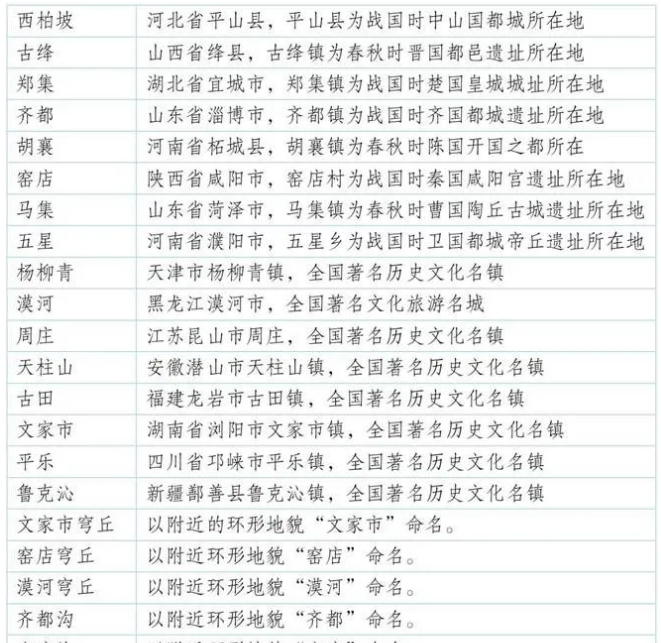 西柏坡 河北省平山县，平山县为战国时中山国都城所在地
古绛 山西省绛县，古绛镇为春秋时晋国都邑遗址所在地
郑集 湖北省宜城市，郑集镇为战国时楚国皇城城址所在地
齐都 山东省淄博市，齐都镇为战国时齐国都城遗址所在地
胡襄 河南省柘城县，胡襄镇为春秋时陈国开国之都所在
窑店 陕西省咸阳市，窑店村为战国时秦国咸阳宫遗址所在地
马集 山东省菏泽市，马集镇为春秋时曹国陶丘古城遗址所在地
五星 河南省濮阳市，五星乡为战国时卫国都城帝丘遗址所在地
杨柳青 天津市杨柳青镇，全国著名历史文化名镇
漠河 黑龙江漠河市，全国著名文化旅游名城
周庄 江苏昆山市周庄，全国著名历史文化名镇
天柱山 安徽潜山市天柱山镇，全国著名历史文化名镇
古田 福建龙岩市古田镇，全国著名历史文化名镇
文家市 湖南省浏阳市文家市镇，全国著名历史文化名镇
平乐 四川省邛崃市平乐镇，全国著名历史文化名镇
鲁克沁 新疆鄯善县鲁克沁镇，全国著名历史文化名镇
文家市穹丘 以附近的环形地貌“文家市”命名。
窑店穹丘 以附近环形地貌“窑店”命名。
漠河穹丘 以附近环形地貌“漠河”命名。
齐都沟 以附近环形地貌“齐都”命名。